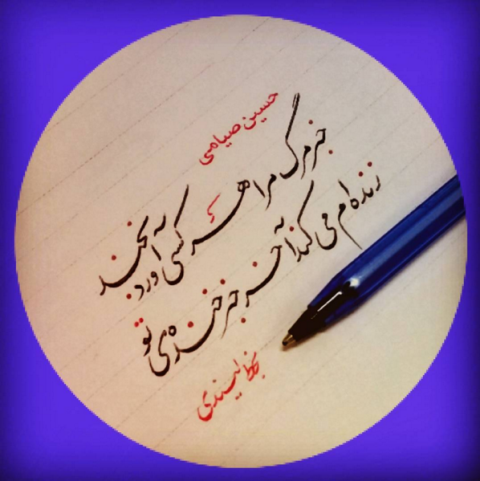 حسین صیامی
خبر مرگ مرا هر کسی آورد بخند
زنده ام می کند آخر خبر خنده ی تو
بخط لیندی